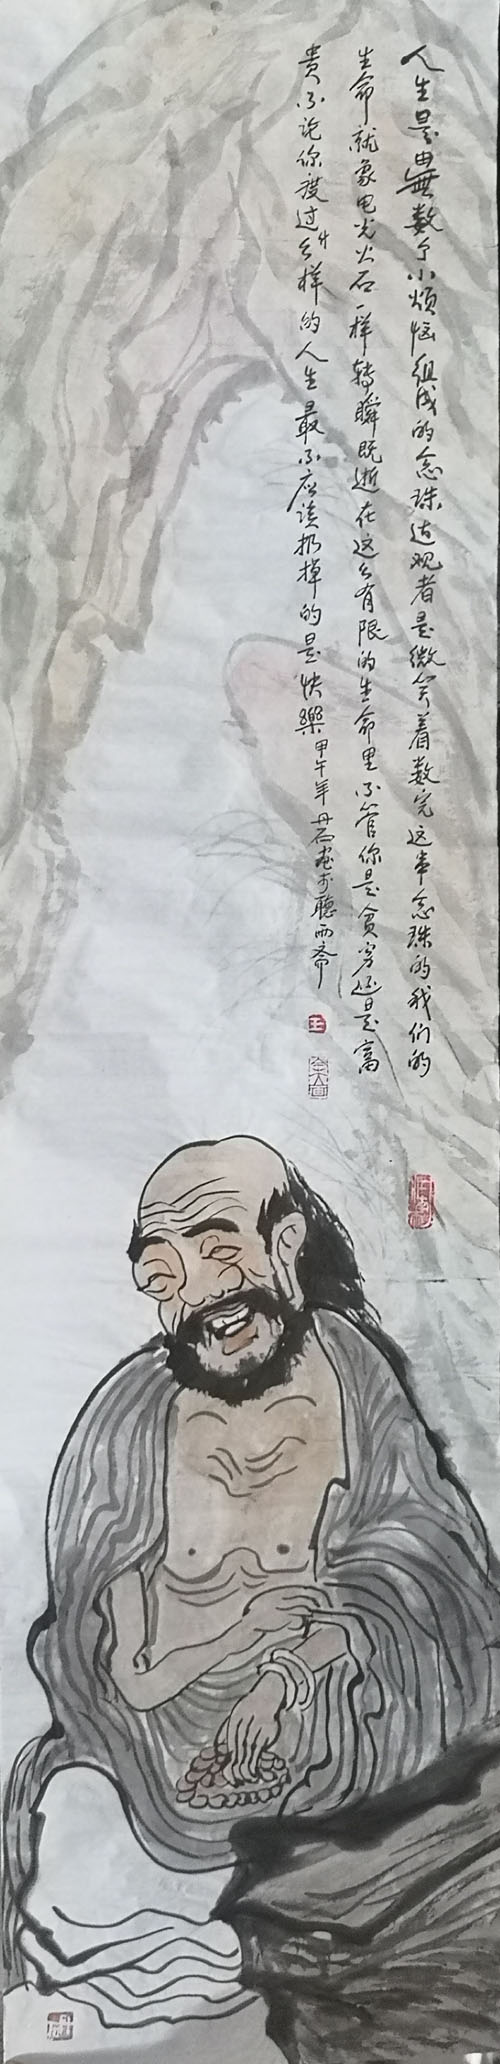 人生是由無數个小烦恼组成的念珠达观者是微笑着数完这串念珠的我们的
生命就象电光火石一样转瞬既逝在这么有限的生命里不管你是贫穷还是富
贵不论你渡过什么样的人生最不应该扔掉的是快樂甲午年丹石画于聽雨斋
王